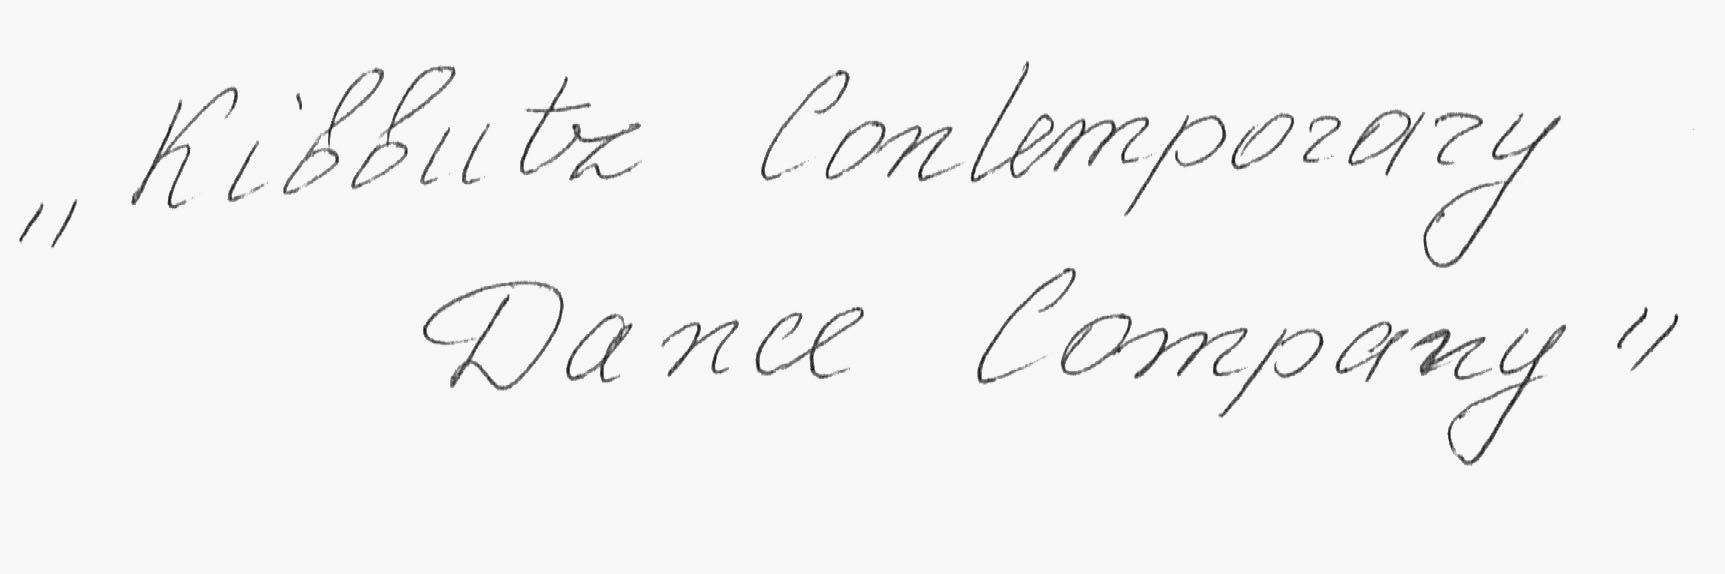 „Kibbutz Contemporary
Dance Company"